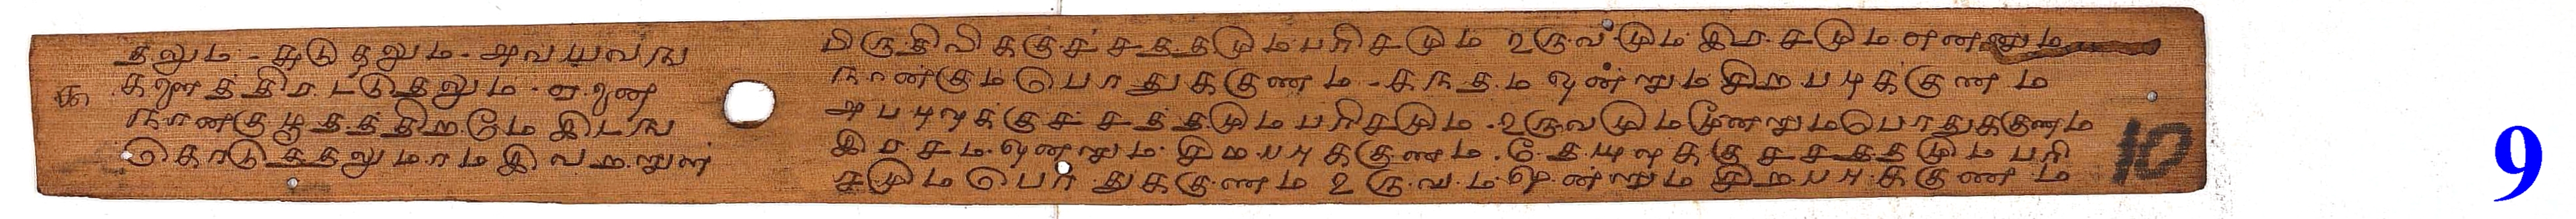 தலும - சுடுதலும - அவயவங
களைத்திரட்டுதலும - ஏனை
நான்குபூதத்திறமே இடங
கொடுத்தலுமாம இவற்றுள
பிருதிவிக்குச் சத்தமும பரிசமும உருவமும இரசமும என்னும
நான்கும பொதுக்குணம - கந்தம ஒன்றும சிறப்புக்குணம
அப்புவுக்குச் சத்தமும பரிசமும உருவமும மூன்றும பொதுக்குணம
இரசம ஒன்றும சிறப்புக்குணம. தேயுவுக்கு சத்தமும பரி
சமும பொதுக்குணம உருவம ஒன்றும சிறப்புக்குணம
10
9